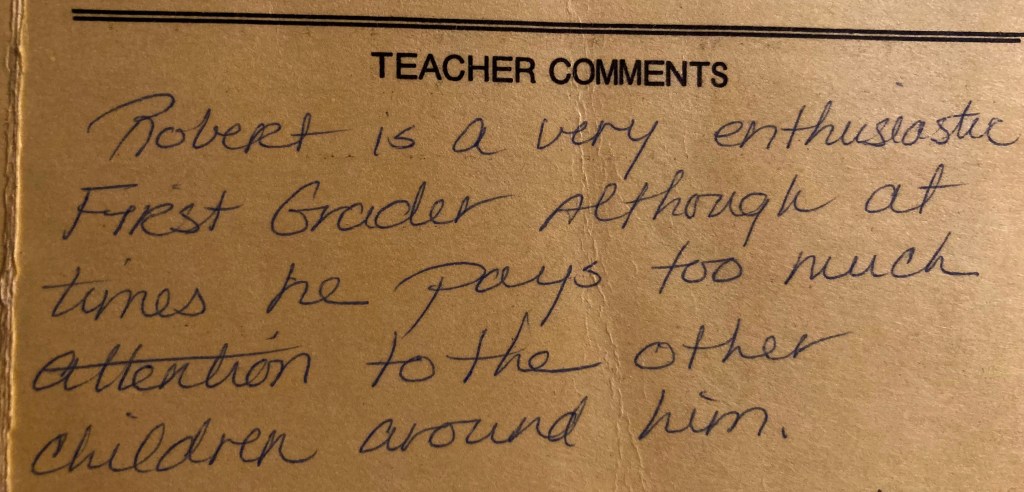 TEACHER COMMENTS
Robert is a very enthusiastic
First Grader although at
times he pays too much
attention to the other
children around him.